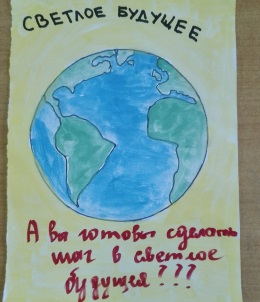 СВЕТЛОЕ БУДУЩЕЕ
А вы готовы сделать
шаг в светлое
будущее???